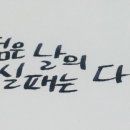 젊은 날의
실패는 다